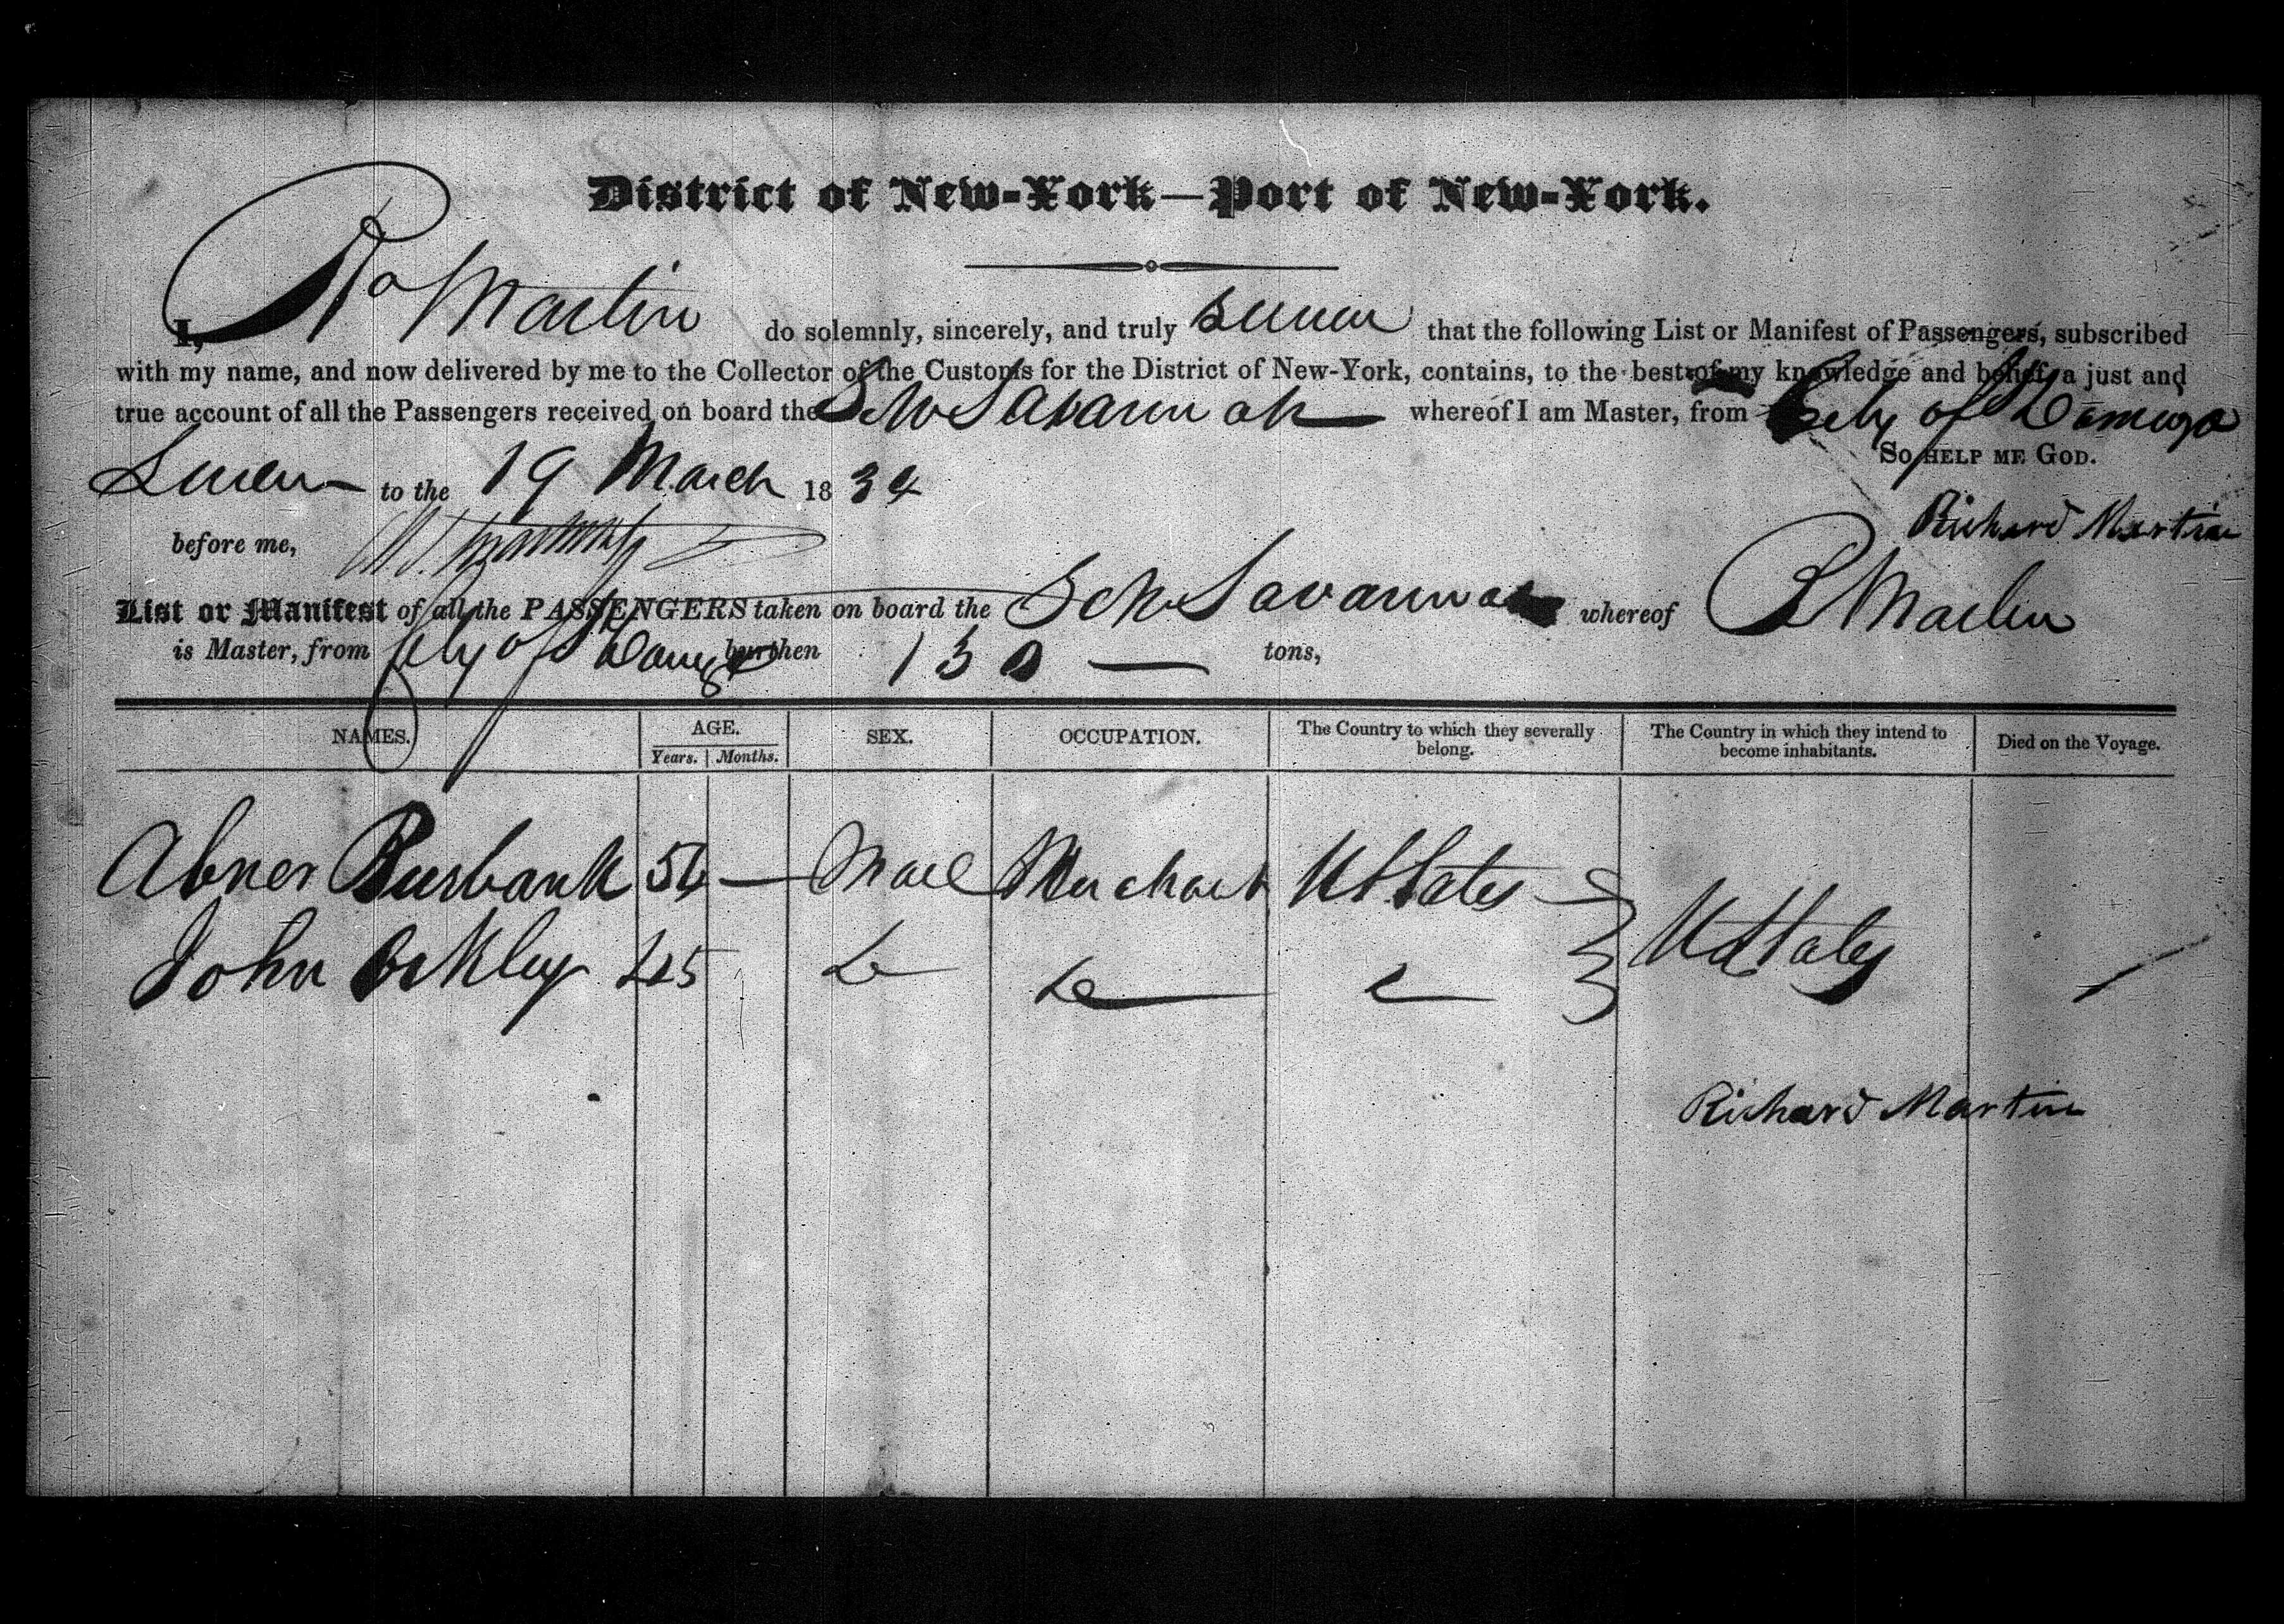 District of New-York—Port of New-York.
I, Rd Martin do solemnly, sincerely, and truly swear that the following List or Manifest of Passengers, subscribed
with my name, and now delivered by me to the Collector of the Customs for the District of New-York, contains, to the best of my knowledge and belief, a just and
true account of all the Passengers received on board the Sch Savannah whereof I am Master, from City of St Domingo
So help me God.
Sworn to the 19 March 1834
Richard Martin
before me,
List or Manifest of all the PASSENGERS taken on board the Sch Savannah whereof R Martin
is Master, from City of St Domingo burthen 130 tons,
NAMES. AGE. Years. Months. SEX. OCCUPATION. The Country to which they severally belong. The Country in which they intend to become inhabitants. Died on the Voyage.
Abner Burbank 54 — Male Merchant U States
John Ackley 45 Do Do Do U States
Richard Martin